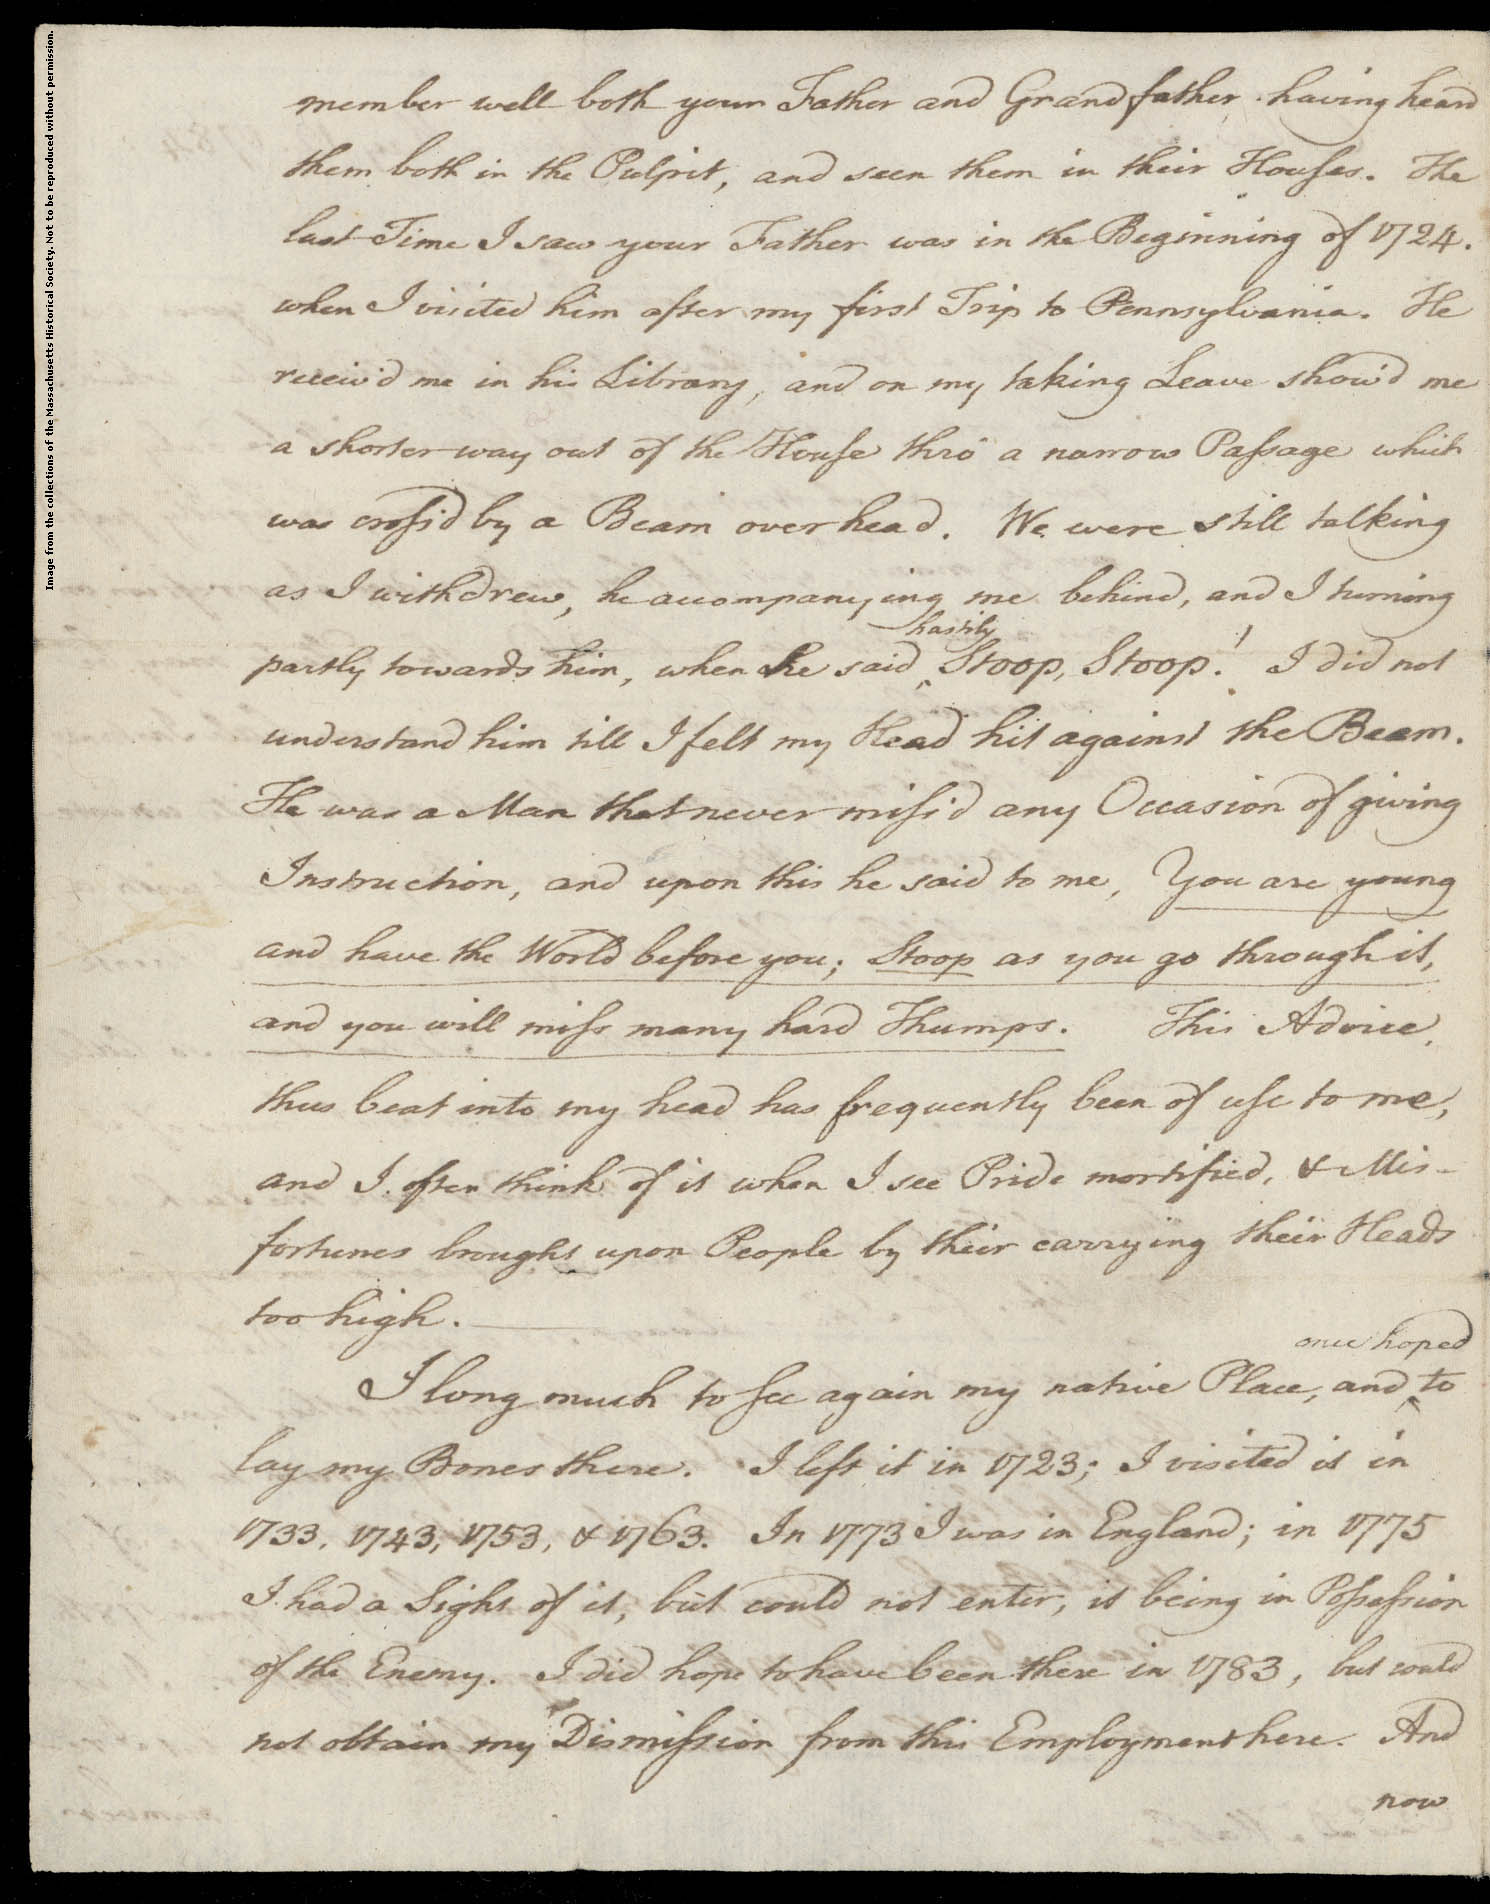 Image from the collections of the Massachusetts Historical Society. Not to be reproduced without permission.
member well both your Father and Grandfather, having heard
them both in the Pulpit, and seen them in their Houses. The
last Time I saw your Father was in the Beginning of 1724.
when I visited him after my first Trip to Pennsylvania. He
receiv'd me in his Library, and on my taking Leave show'd me
a shorter way out of the House thro' a narrow Passage which
was cross'd by a Beam over head. We were still talking
as I withdrew, he accompanying me behind, and I turning
hastily
partly towards him, when he said ‸ Stoop, Stoop! I did not
understand him till I felt my Head hit against the Beam.
He was a Man that never miss'd any Occasion of giving
Instruction, and upon this he said to me, You are young
and have the World before you; Stoop as you go through it,
and you will miss many hard Thumps. This Advice,
thus beat into my head has frequently been of use to me,
and I often think of it when I see Pride mortified, & Mis-
fortunes brought upon People by their carrying their Heads
too high. —
once hoped
I long much to see again my native Place, and ‸ to
lay my Bones there. I left it in 1723; I visited it in
1733, 1743, 1753, & 1763. In 1773 I was in England; in 1775
I had a Sight of it, but could not enter, it being in Possession
of the Enemy. I did hope to have been there in 1783, but could
not obtain my Dismission from this Employment here. And
now